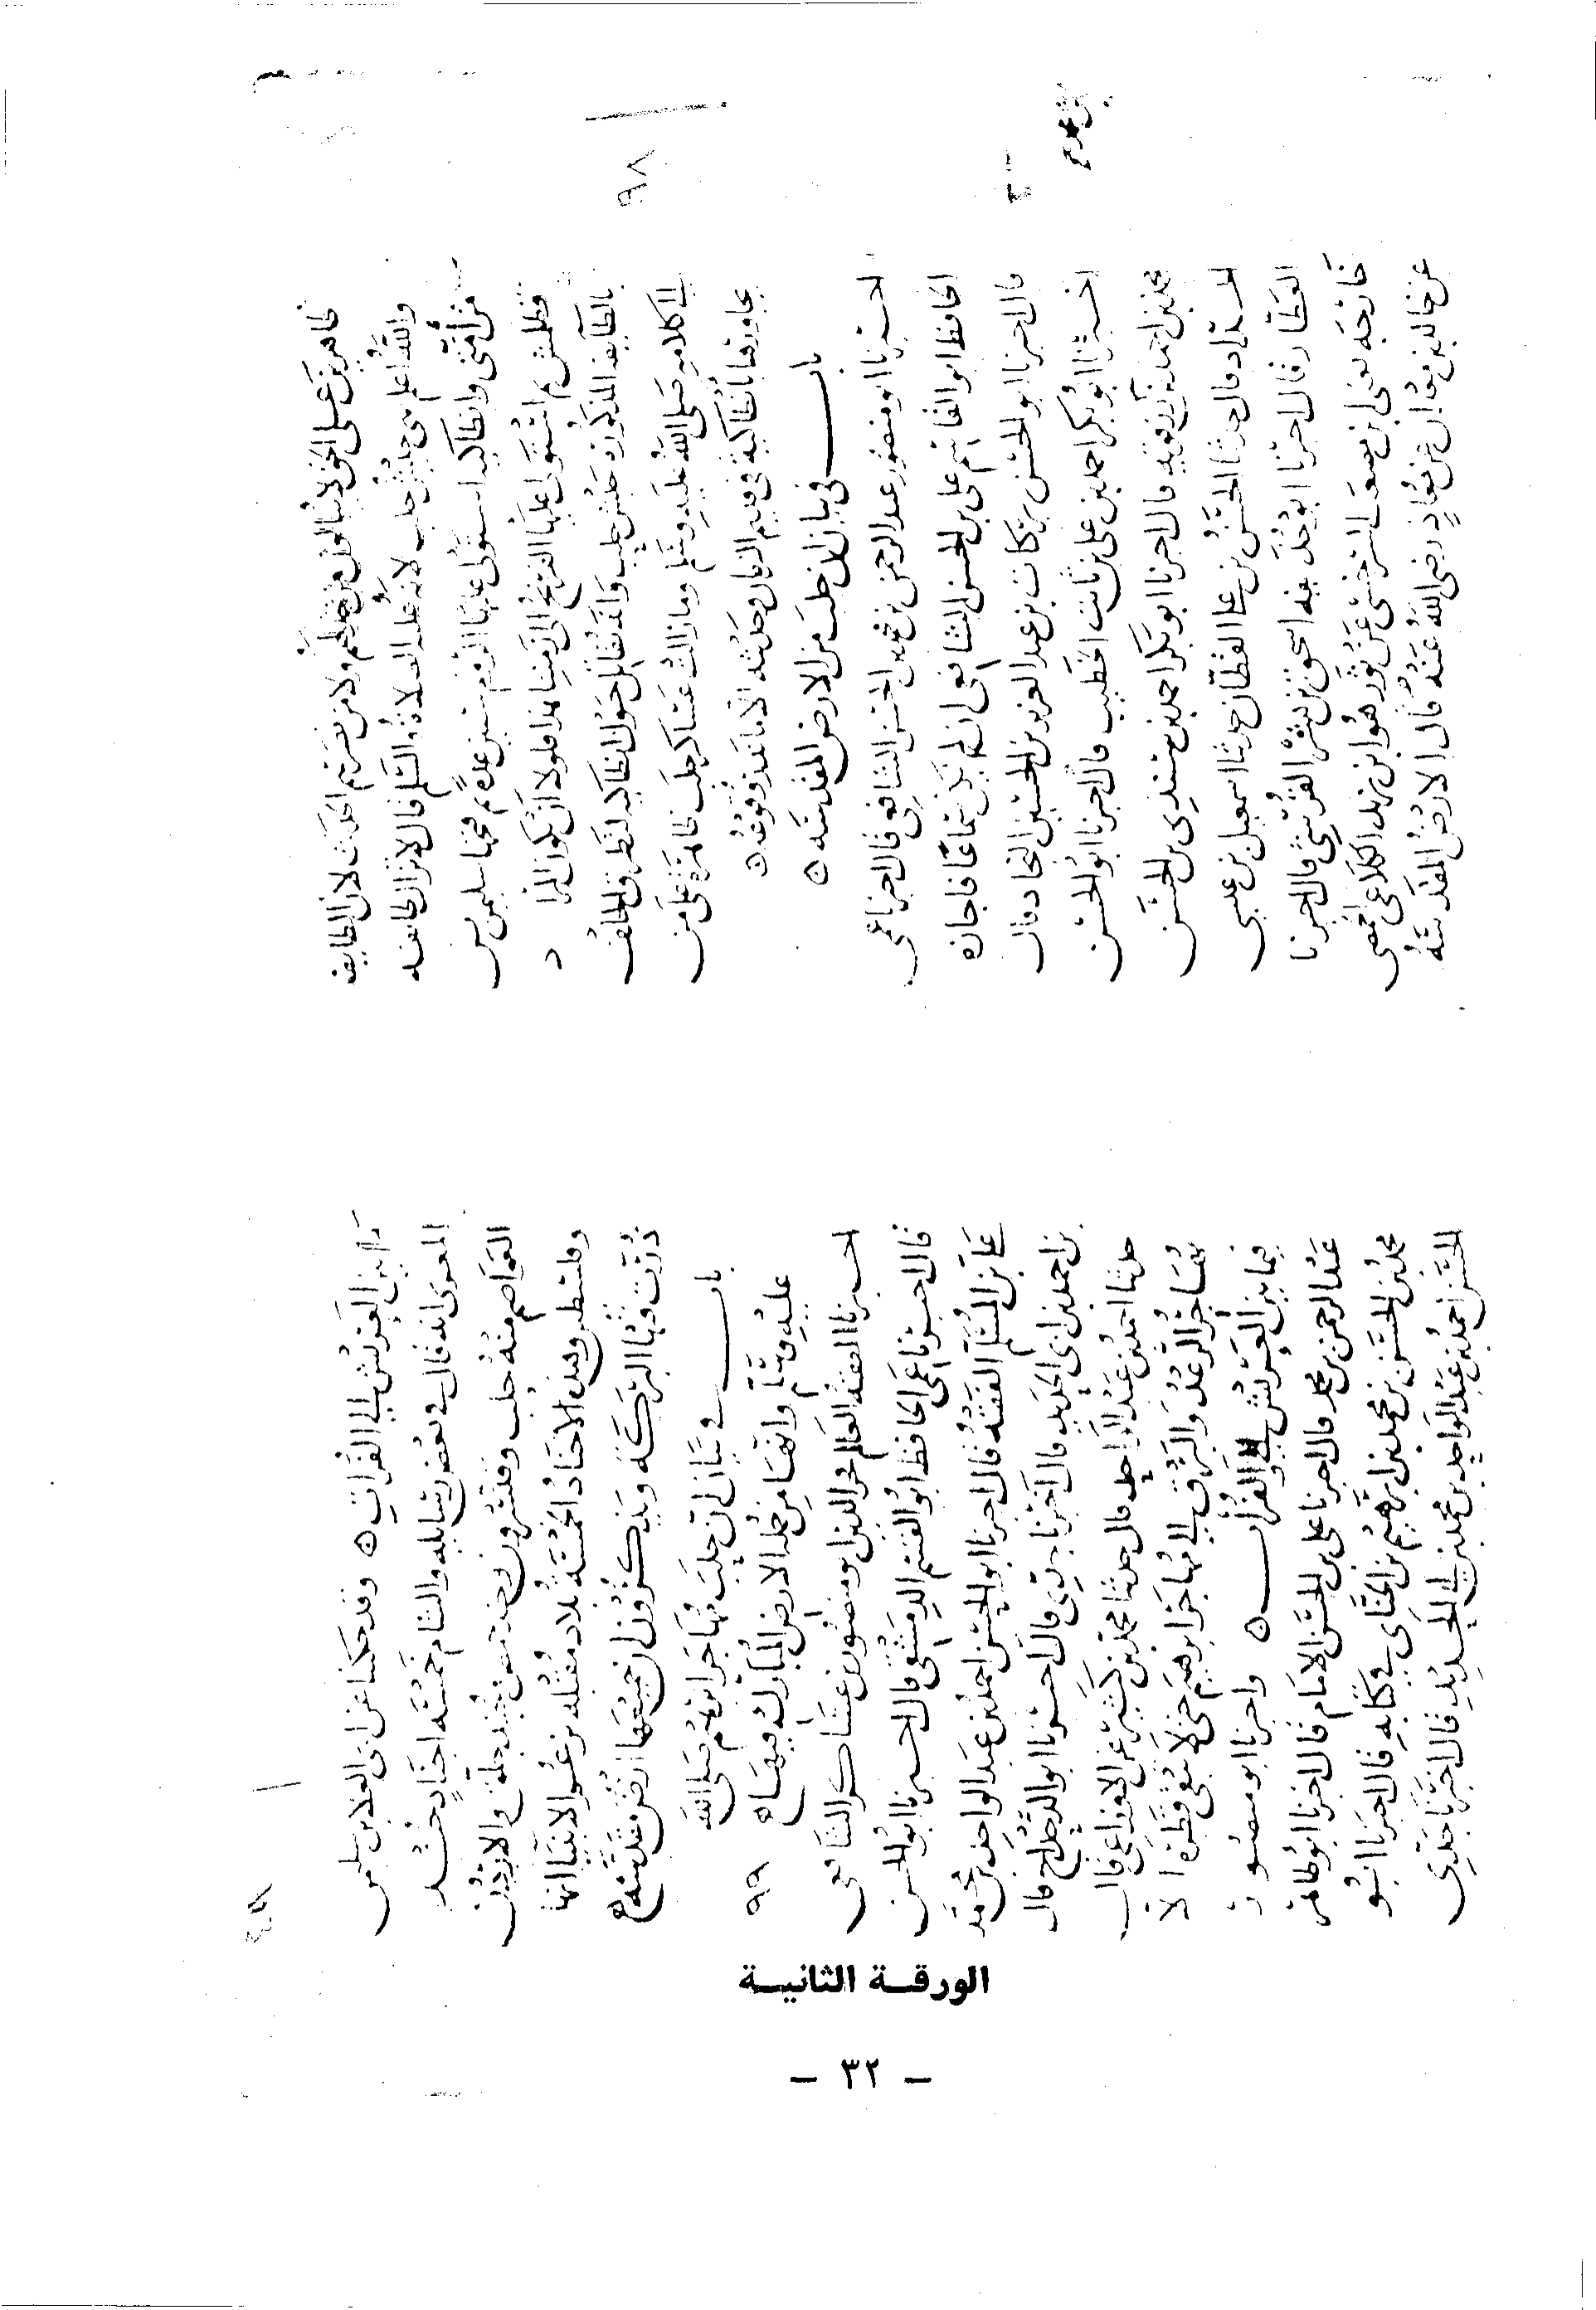 ظاهرين على الحق لا يبالون من خذلهم ولا من نصرهم الحديث لان الطايفه
والله اعلم هي جيش حلب لانه عليه الصلاة والسلم قال لا تزال طايفه
من امتى وانطاكيه استولى عليها الروم سنين عدة ثم فتحها سليمن بن
قطلمش ثم استولى عليها الفرنج الى زمننا هذا فلولا ان يكون المراد
بالطايفه المذكورة جيش حلب وانه تقاتل حول انطاكيه لتطرق الخلف
الى كلامه صلى الله عليه وسلم وما زالت عساكر حلب ظاهرة على من
يجاورها بانطاكية فى قديم الزمان وحديثه الا ما ندر وقوعه ٥
باب فى بيان ان حلب من الارض المقدسه ٥
اخبرنا ابو منصور عبد الرحمن بن محمد بن الحسن الشافعى قال اخبرنا عمى
الحافظ ابو القاسم على بن الحسن الشافعى ان لم يكن سماعا فاجازه
قال اخبرنا ابو الحسن بركات بن عبد العزيز بن الحسين النجاد قال
اخبرنا ابو بكر احمد بن على بن ثابت الخطيب قال اخبرنا ابو الحسن
محمد بن احمد بن رزقويه قال اخبرنا ابو بكر احمد بن سندى بن الحسن
الحداد قال حدثنا الحسن بن على القطان حدثنا اسمعيل بن عيسى
العطار قال اخبرنا ابو حذيفه اسحق بن بشر القرشى قال اخبرنا
خارجه يعنى ابن مصعب السرخسى عن ثور هو ابن يزيد الكلاعى الحمصى
عن خالد بن معدان عن معاذ رضى الله عنه قال الارض المقدسة
٩٨
ما بين العريش الى الفرات ٥ وقد حكينا عن ابى العلا بن سليمن
المعرى انه قال فى بعض رسايله والشام خمسه اجناد جند
العواصم منه حلب وقنسرون وجند حمص وجند جلق والاردن
وفلسطين وهذه الاجناد الخمسة بلاد مقدسه يزعموا الانبيا انها
ذرت فيها البركه ويذكرون ان جميعها ارض مقدسه ٥
باب فى بيان ان حلب مهاجر ابرهيم صلى الله
عليه وسلم وانها من جمله الارض المبارك فيها ٥
٩٩
اخبرنا الفقيه العالم فخر الدين ابو منصور بن عساكر الشافعى
قال اخبرنا عمى الحافظ ابو القسم الدمشقى قال اخبرنا ابو الحسن
على بن المسلم الفقيه قال اخبرنا ابو الحسن احمد بن عبد الواحد بن محمد
بن احمد بن ابى الحديد قال اخبرنا جدى قال اخبرنا ابو الدحداح قال
حدثنا احمد بن عبد الواحد قال حدثنا محمد بن كثير عن الاوزاعى قال
يهاجر الرعد والبرق الى مهاجر ابرهيم حتى لا تبقى قطرة الا
فيما بين العريش الى الفرات ٥ واخبرنا ابو منصور
عبد الرحمن بن محمد قال اخبرنا على بن الحسن الامام قال اخبرنا ابو طاهر
محمد بن الحسن بن محمد بن ابرهيم بن الحنائى فى كتابه قال اخبرنا ابو
الحسن احمد بن عبد الواحد بن محمد بن ابى الحديد قال اخبرنا جدى
الورقــة الثانيــة
– ٣٢ –